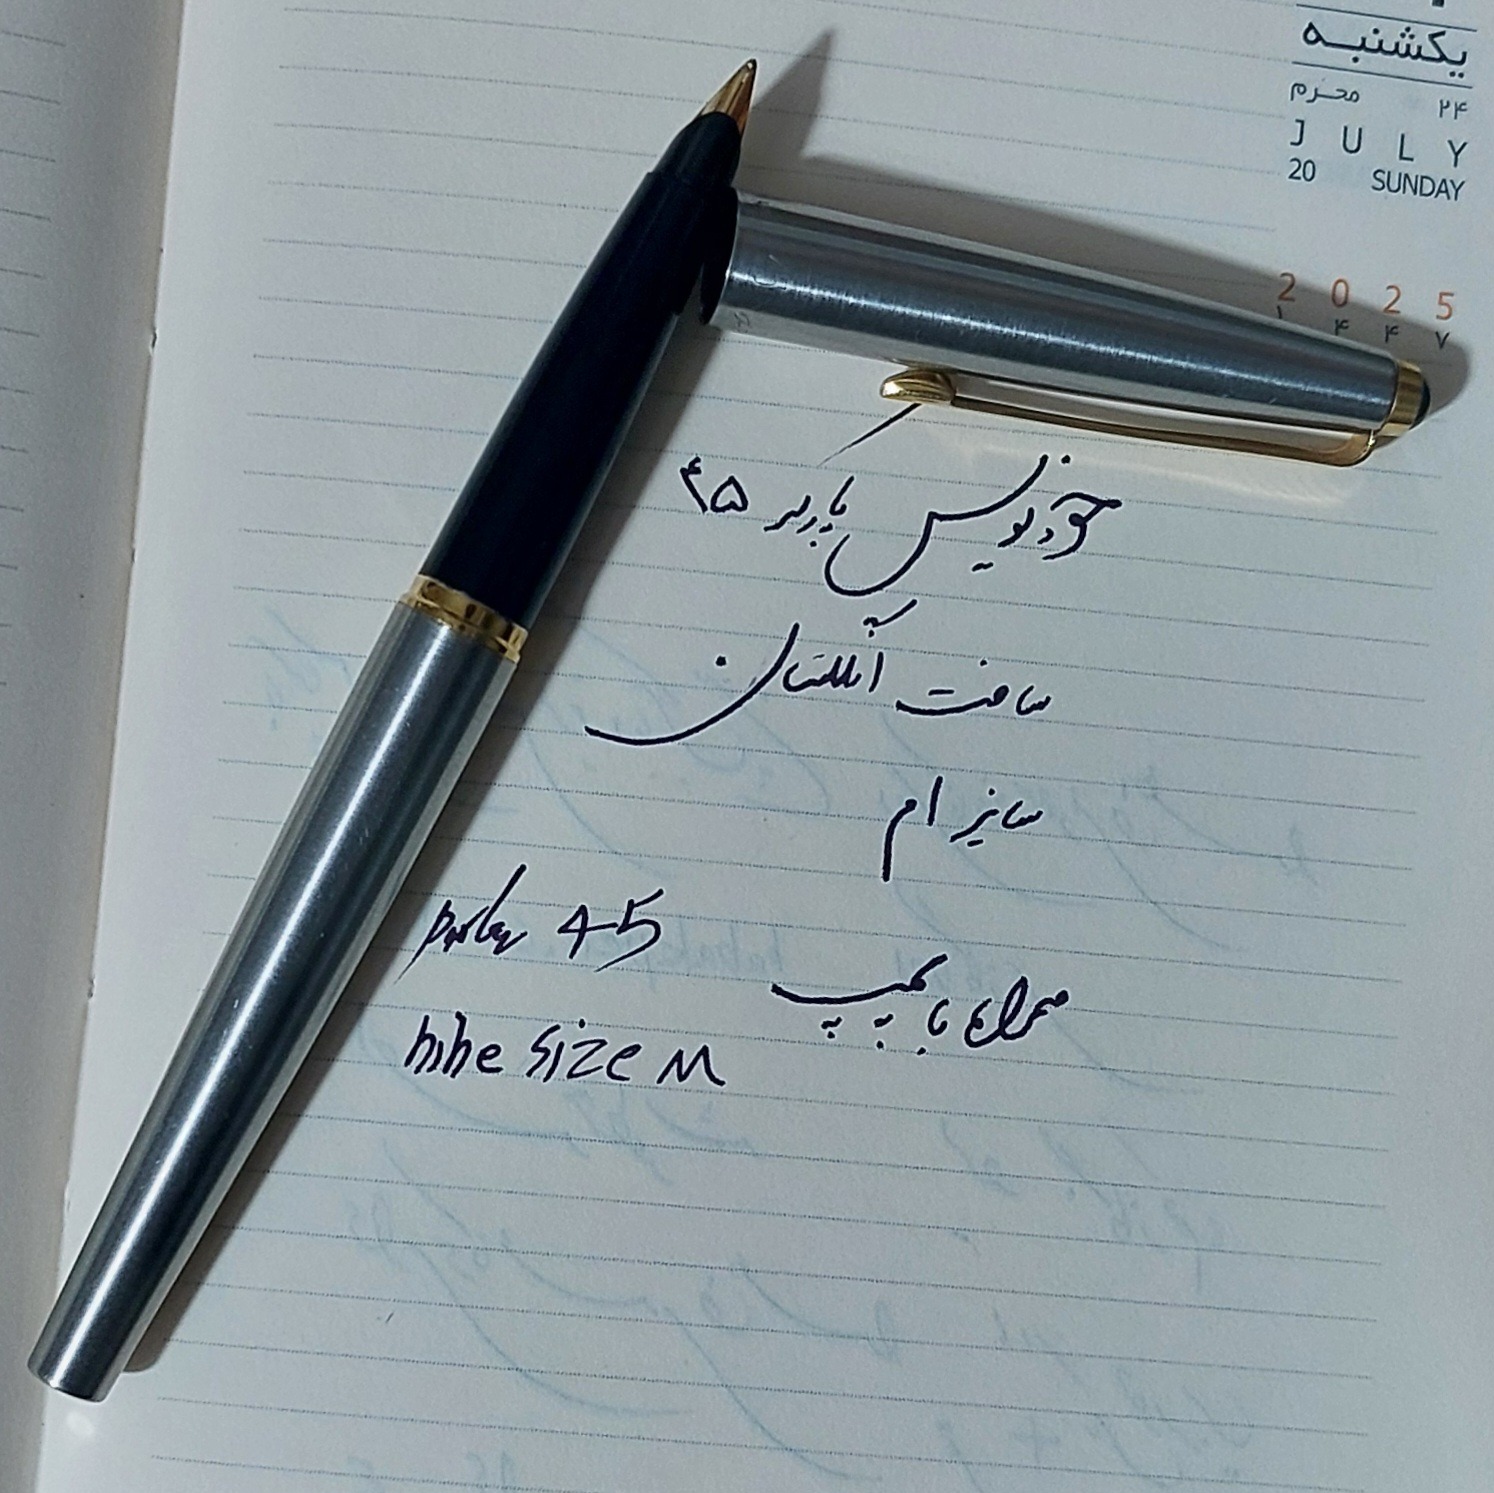 یکشنبه
۲۴ محرم
JULY
20 SUNDAY
2025
۱۴۴۷
خودنویس پارکر ۴۵
ساخت انگلستان
سایز ام
همراه با پمپ
parker 45
nine size M